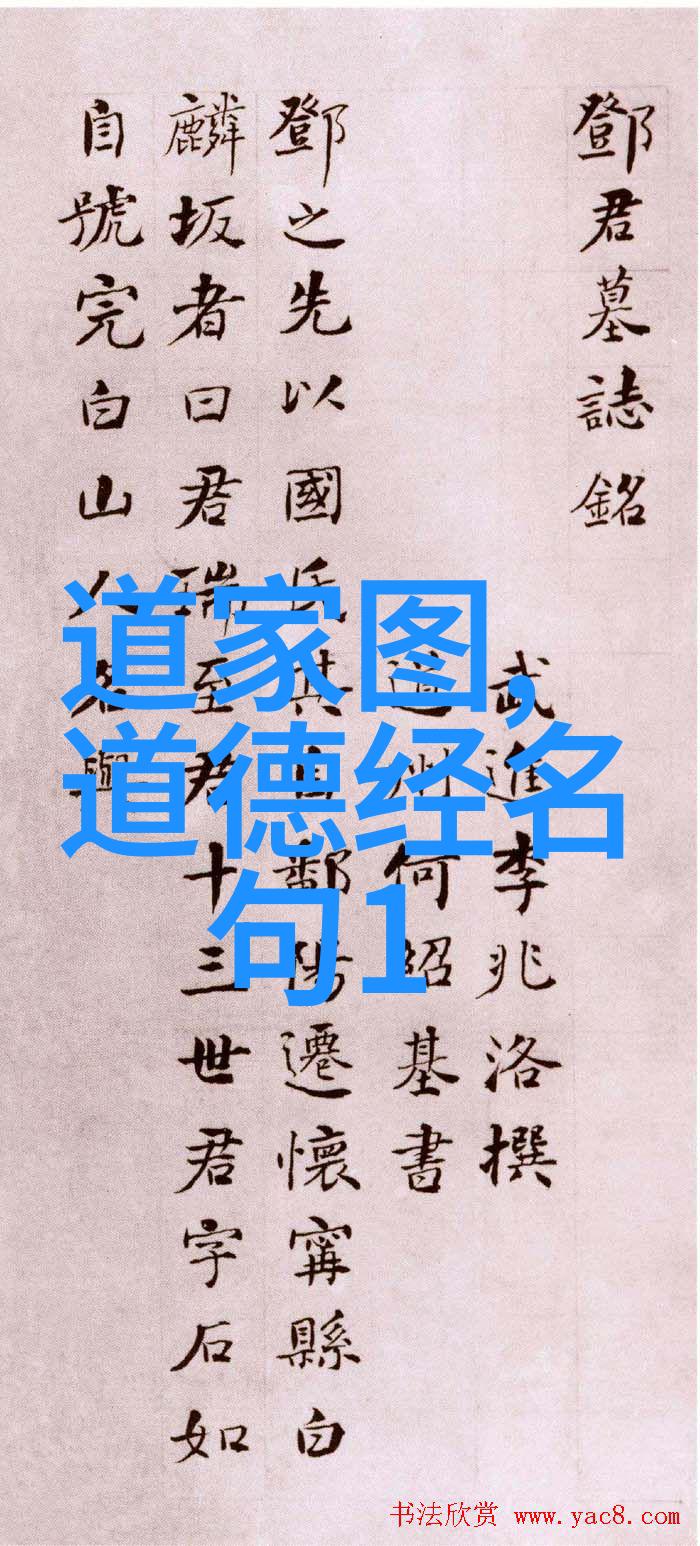 鄧君墓誌銘
武進李兆洛撰
道州何紹基書
鄧之先以國氏其自鄱陽遷懷甯縣白
麟坂者曰君瑞至君十三世君字石如
自號完白山人名與
道家图,
道德经名
句1
书法欣赏 www.yac8.com